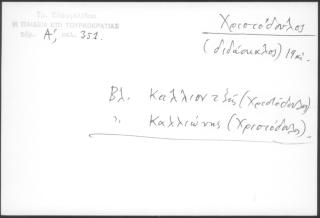 Τρ. Ευαγγελίδου
Η ΠΑΙΔΕΙΑ ΕΠΙ ΤΟΥΡΚΟΚΡΑΤΙΑΣ
τόμ. Α', σελ. 351.
Χριστόδουλος
(διδάσκαλος) 19ος
Βλ. Καλλιοντζής (Χριστόδουλος)
" Καλλιώνης (Χριστόδουλος)